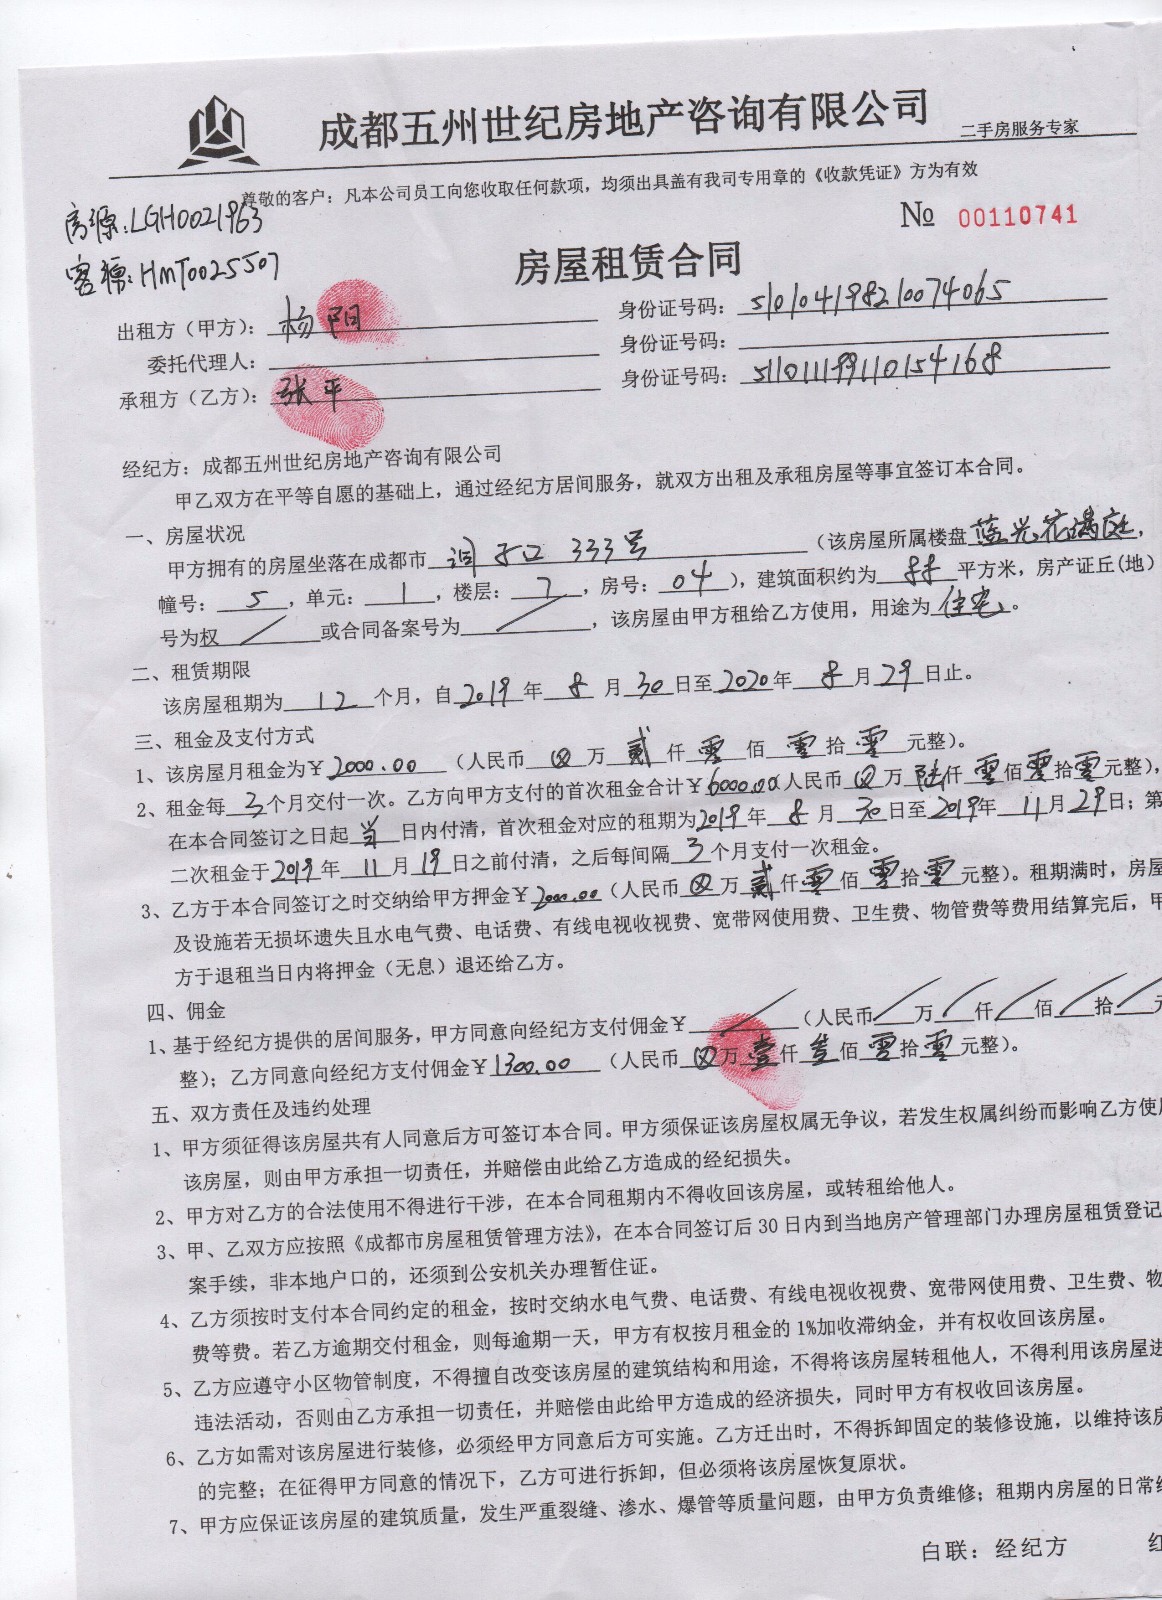 成都五州世纪房地产咨询有限公司 二手房服务专家
尊敬的客户：凡本公司员工向您收取任何款项，均须出具盖有我司专用章的《收款凭证》方为有效
房源:LGH0021963
№ 00110741
客源:HMT0025507
房屋租赁合同
出租方（甲方）：杨阳 身份证号码：510104198210074065
委托代理人： 身份证号码：
承租方（乙方）：张平 身份证号码：511011199110154168
经纪方：成都五州世纪房地产咨询有限公司
甲乙双方在平等自愿的基础上，通过经纪方居间服务，就双方出租及承租房屋等事宜签订本合同。
一、房屋状况
甲方拥有的房屋坐落在成都市 洞子口 333号 （该房屋所属楼盘 蓝光花满庭，
幢号：5，单元：1，楼层：7，房号：04），建筑面积约为 88 平方米，房产证丘(地)
号为权 / 或合同备案号为 / ，该房屋由甲方租给乙方使用，用途为 住宅。
二、租赁期限
该房屋租期为 12 个月，自 2019 年 8 月 30 日至 2020 年 8 月 29 日止。
三、租金及支付方式
1、该房屋月租金为￥2000.00（人民币 ⊗ 万 贰 仟 零 佰 零 拾 零 元整）。
2、租金每 3 个月交付一次。乙方向甲方支付的首次租金合计￥6000.00（人民币 ⊗ 万 陆 仟 零 佰 零 拾 零 元整），
在本合同签订之日起 当 日内付清，首次租金对应的租期为 2019 年 8 月 30 日至 2019 年 11 月 29 日；第
二次租金于 2019 年 11 月 19 日之前付清，之后每间隔 3 个月支付一次租金。
3、乙方于本合同签订之时交纳给甲方押金￥2000.00（人民币 ⊗ 万 贰 仟 零 佰 零 拾 零 元整）。租期满时，房屋
及设施若无损坏遗失且水电气费、电话费、有线电视收视费、宽带网使用费、卫生费、物管费等费用结算完后，甲
方于退租当日内将押金（无息）退还给乙方。
四、佣金
1、基于经纪方提供的居间服务，甲方同意向经纪方支付佣金￥ / （人民币 / 万 / 仟 / 佰 / 拾 / 元
整）；乙方同意向经纪方支付佣金￥1300.00（人民币 ⊗ 万 壹 仟 叁 佰 零 拾 零 元整）。
五、双方责任及违约处理
1、甲方须征得该房屋共有人同意后方可签订本合同。甲方须保证该房屋权属无争议，若发生权属纠纷而影响乙方使用
该房屋，则由甲方承担一切责任，并赔偿由此给乙方造成的经纪损失。
2、甲方对乙方的合法使用不得进行干涉，在本合同租期内不得收回该房屋，或转租给他人。
3、甲、乙双方应按照《成都市房屋租赁管理方法》，在本合同签订后 30 日内到当地房产管理部门办理房屋租赁登记
案手续，非本地户口的，还须到公安机关办理暂住证。
4、乙方须按时支付本合同约定的租金，按时交纳水电气费、电话费、有线电视收视费、宽带网使用费、卫生费、物
费等费。若乙方逾期交付租金，则每逾期一天，甲方有权按月租金的 1%加收滞纳金，并有权收回该房屋。
5、乙方应遵守小区物管制度，不得擅自改变该房屋的建筑结构和用途，不得将该房屋转租他人，不得利用该房屋进
违法活动，否则由乙方承担一切责任，并赔偿由此给甲方造成的经济损失，同时甲方有权收回该房屋。
6、乙方如需对该房屋进行装修，必须经甲方同意后方可实施。乙方迁出时，不得拆卸固定的装修设施，以维持该房
的完整；在征得甲方同意的情况下，乙方可进行拆卸，但必须将该房屋恢复原状。
7、甲方应保证该房屋的建筑质量，发生严重裂缝、渗水、爆管等质量问题，由甲方负责维修；租期内房屋的日常维
白联：经纪方 红